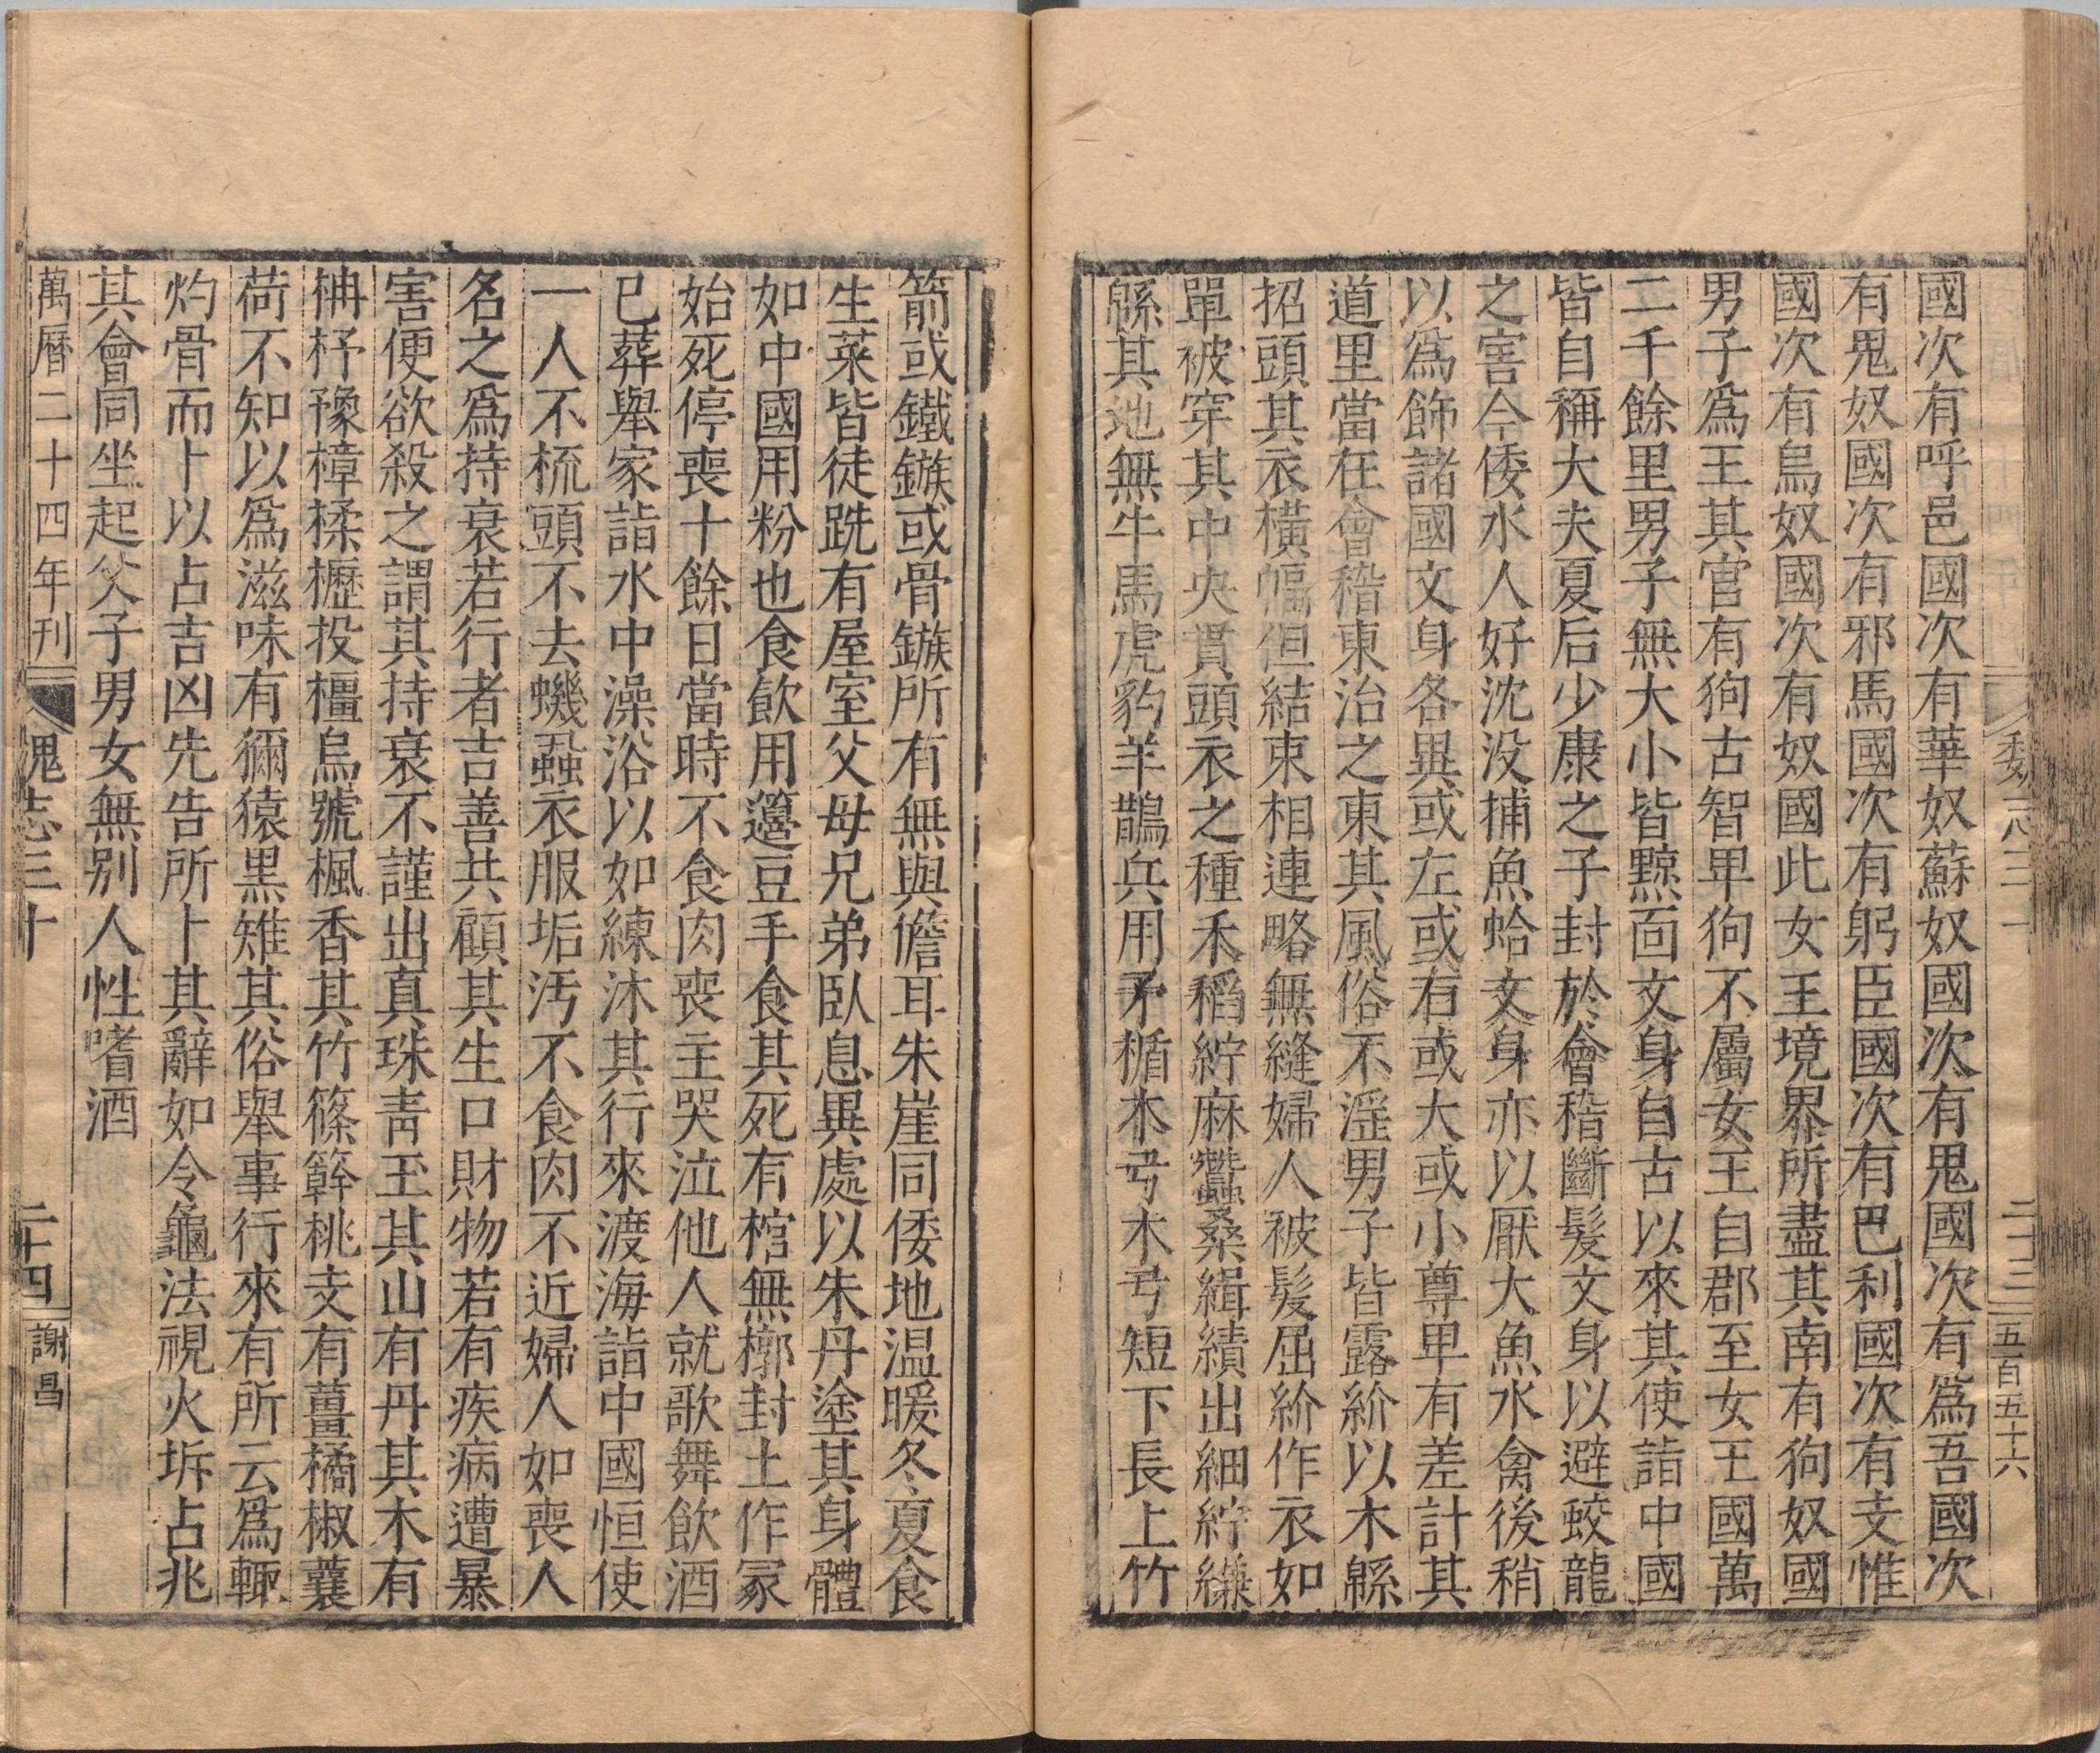 國次有呼邑國次有華奴蘇奴國次有鬼國次有爲吾國次
有鬼奴國次有邪馬國次有躬臣國次有巴利國次有支惟
國次有烏奴國次有奴國此女王境界所盡其南有狗奴國
男子爲王其官有狗古智卑狗不屬女王自郡至女王國萬
二千餘里男子無大小皆黥面文身自古以來其使詣中國
皆自稱大夫夏后少康之子封於會稽斷髮文身以避蛟龍
之害今倭水人好沈没捕魚蛤文身亦以厭大魚水禽後稍
以爲飾諸國文身各異或左或右或大或小尊卑有差計其
道里當在會稽東治之東其風俗不淫男子皆露紒以木緜
招頭其衣橫幅但結束相連略無縫婦人被髮屈紒作衣如
單被穿其中央貫頭衣之種禾稻紵麻蠶桑緝績出細紵縑
緜其地無牛馬虎豹羊鵲兵用矛楯木弓木弓短下長上竹
五百五十六
箭或鐵鏃或骨鏃所有無與儋耳朱崖同倭地温暖冬夏食
生菜皆徒跣有屋室父母兄弟臥息異處以朱丹塗其身體
如中國用粉也食飲用籩豆手食其死有棺無槨封土作冢
始死停喪十餘日當時不食肉喪主哭泣他人就歌舞飲酒
已葬舉家詣水中澡浴以如練沐其行來渡海詣中國恒使
一人不梳頭不去蟣蝨衣服垢汚不食肉不近婦人如喪人
名之爲持衰若行者吉善共顧其生口財物若有疾病遭暴
害便欲殺之謂其持衰不謹出真珠青玉其山有丹其木有
枏杼豫樟楺櫪投橿烏號楓香其竹篠簳桃支有薑橘椒蘘
荷不知以爲滋味有獼猿黒雉其俗舉事行來有所云爲輒
灼骨而卜以占吉凶先告所卜其辭如令龜法視火坼占兆
其會同坐起父子男女無别人性嗜酒
萬曆二十四年刊 魏志三十 二十四 謝昌